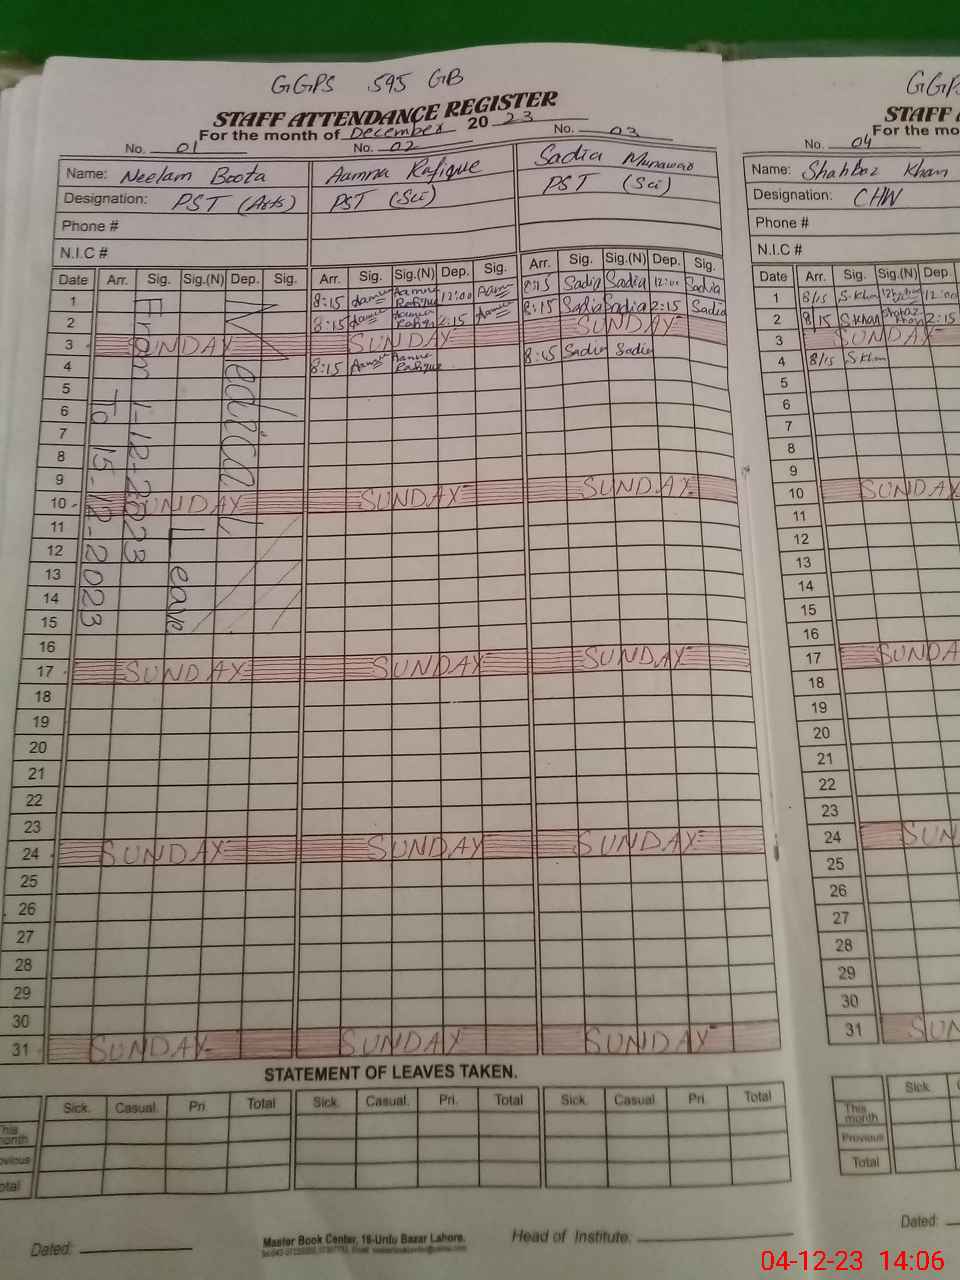 GGPS 595 GB
STAFF ATTENDANCE REGISTER
For the month of December 2023
No. 01 No. 02 No. 03
Name: Neelam Boota Aamna Rafique Sadia Munawar
Designation: PST (Arts) PST (Sci) PST (Sci)
Phone #
N.I.C #
Date Arr. Sig. Sig.(N) Dep. Sig. Arr. Sig. Sig.(N) Dep. Sig. Arr. Sig. Sig.(N) Dep. Sig.
1 8:15 Aamna Aamna Rafique 12:00 Aamna 8:15 Sadia Sadia 12:00 Sadia
2 8:15 Aamna Aamna Rafique 2:15 Aamna 8:15 Sadia Sadia 2:15 Sadia
3 SUNDAY SUNDAY SUNDAY
4 8:15 Aamna Aamna Rafique 8:15 Sadia Sadia
5
6
7
8
9
10 SUNDAY SUNDAY SUNDAY
11
12
13
14
15
16
17 SUNDAY SUNDAY SUNDAY
18
19
20
21
22
23
24 SUNDAY SUNDAY SUNDAY
25
26
27
28
29
30
31 SUNDAY SUNDAY SUNDAY
From 1-12-2023
To 15-12-2023
Medical Leave
STATEMENT OF LEAVES TAKEN.
Sick. Casual. Pri. Total Sick. Casual. Pri. Total Sick. Casual Pri. Total
This month
vious
otal
Dated:
Master Book Center, 16-Urdu Bazar Lahore.
Head of Institute:
GGPS
STAFF A
For the mo
No. 04
Name: Shahbaz Khan
Designation: CHW
Phone #
N.I.C #
Date Arr. Sig. Sig.(N) Dep.
1 8/15 S.Khan 12:00
2 8/15 S.Khan Shahbaz Khan 2:15
3 SUNDAY
4 8/15 S.Khan
5
6
7
8
9
10 SUNDAY
11
12
13
14
15
16
17 SUNDA
18
19
20
21
22
23
24 SUN
25
26
27
28
29
30
31 SUN
Sick.
This month
Previous
Total
Dated:
04-12-23 14:06